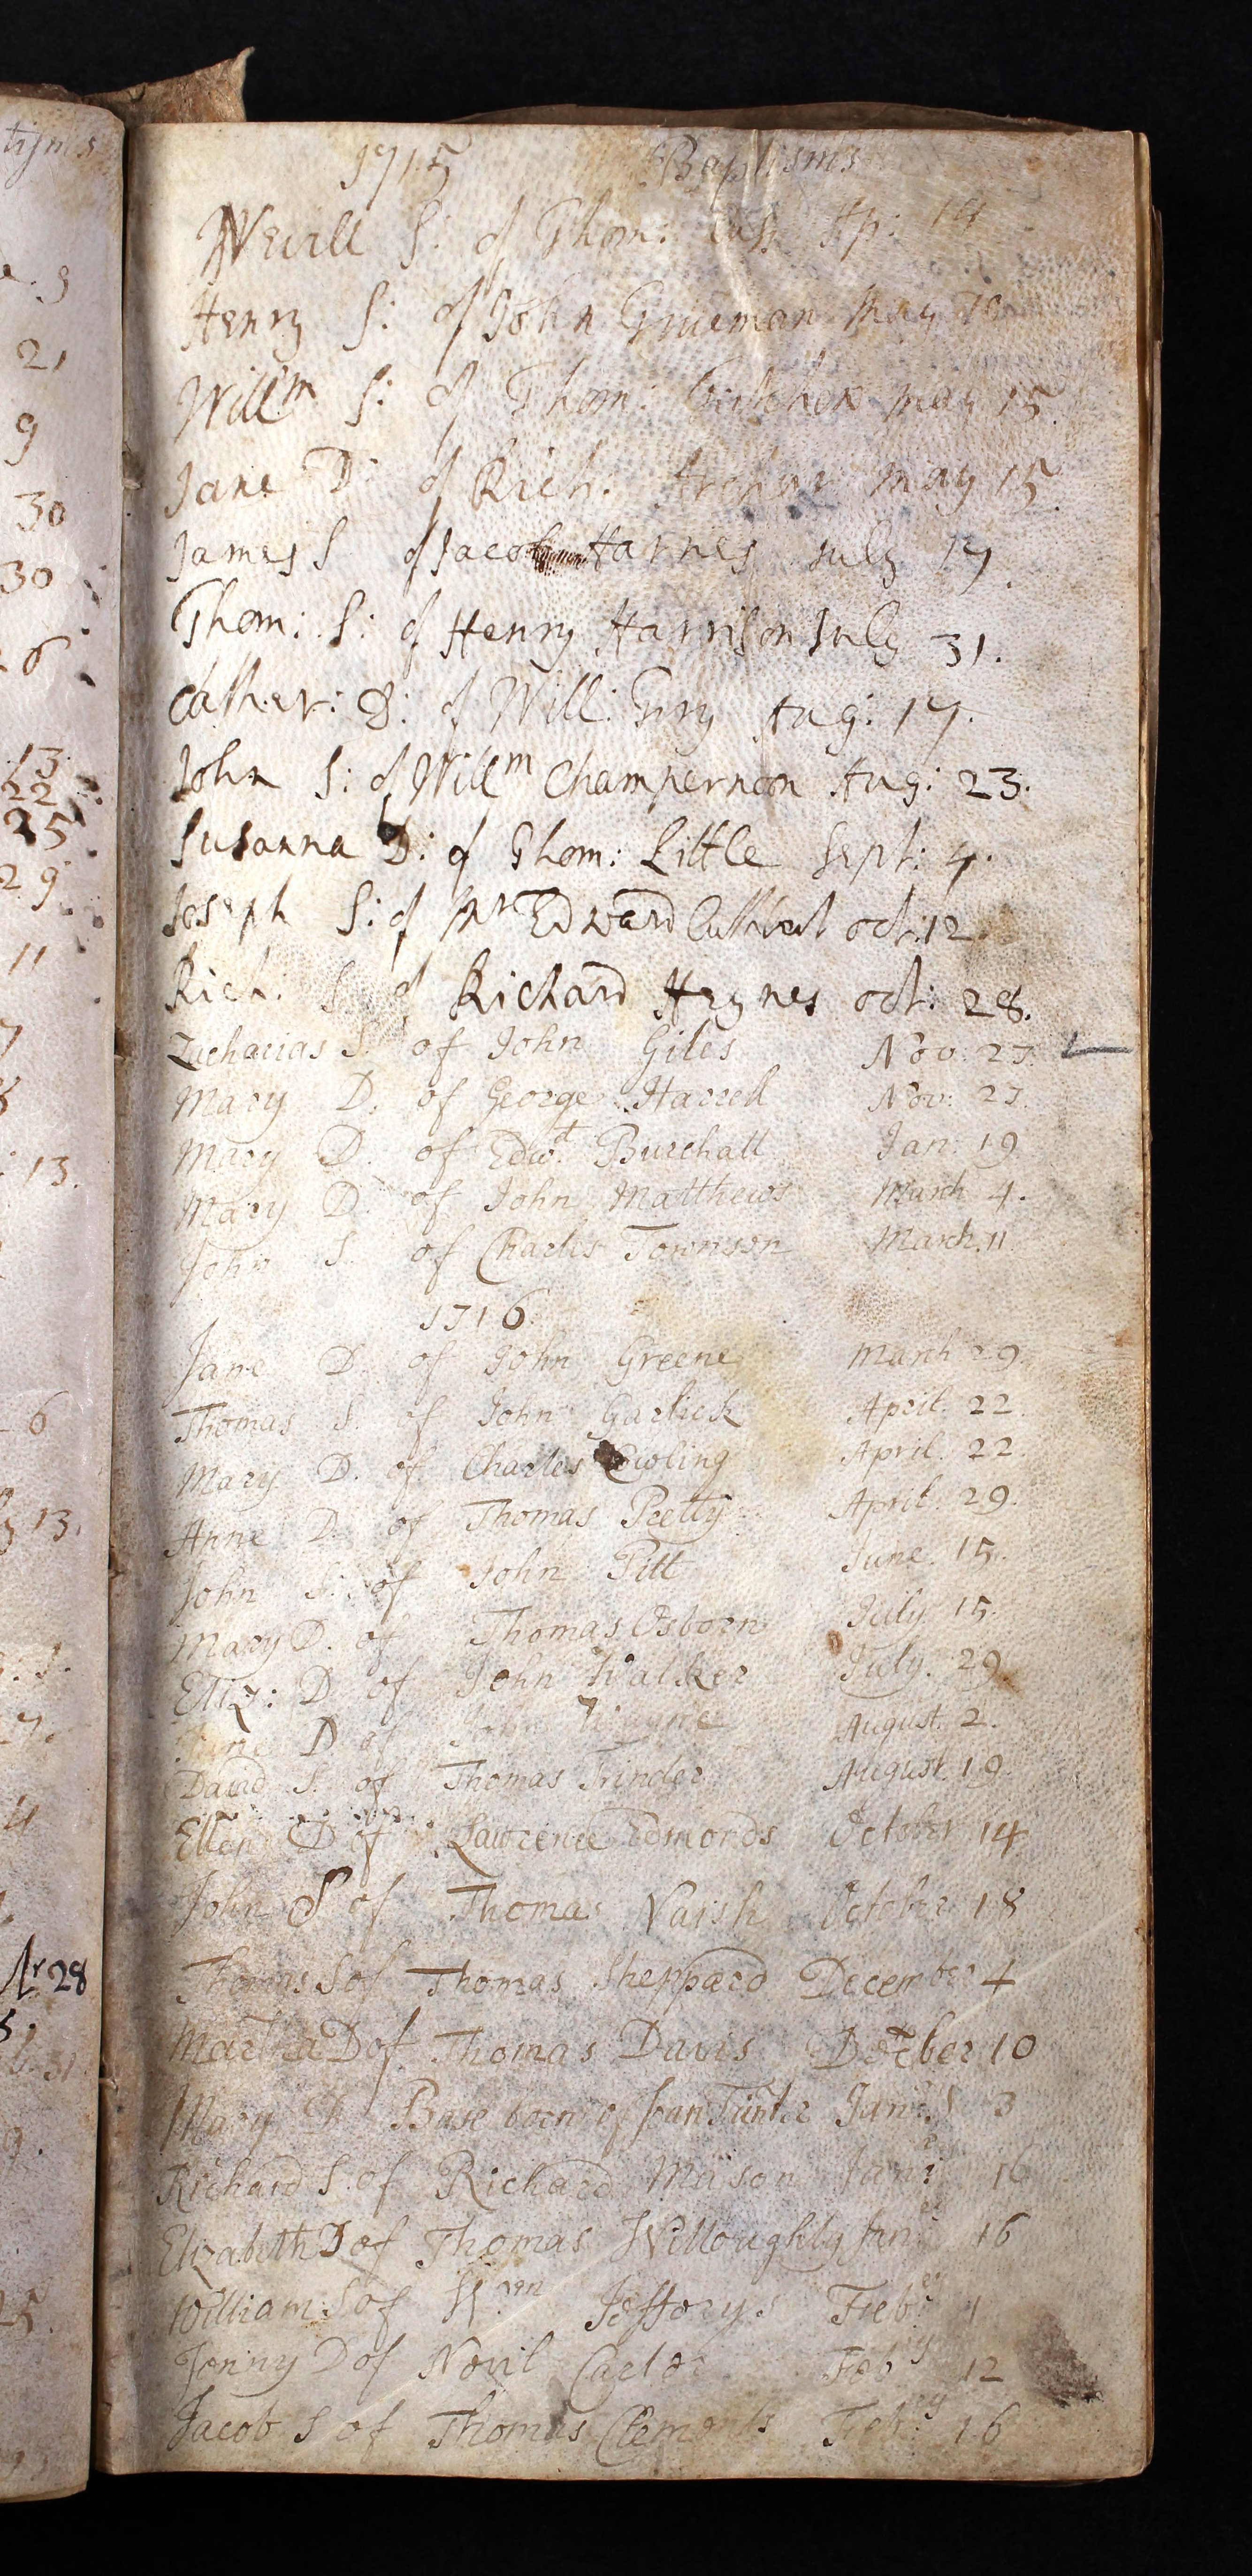 tijms
9
21
9
30
30
6
13
22
25
29
11
7
13.
6
13.
4
Nr 28
31
9.
1715 Baptisms
Nevill S: of Thom: Ap: 14
Henry S: of John Grueman May
Will.m S: of Thom: May 15.
Jane D: of Rich. Archar May 15.
James S of Jacob Harnes July 17.
Thom: S: of Henry Harrison July 31.
Cather: D: of Will: Gry Aug: 17.
John S: of Willm Champernon Aug: 23.
Susanna D: of Thom: Little Sept: 4.
Joseph S: of Mr Edward oct: 12.
Rich: S: of Richard Haynes oct: 28.
Zacharias S. of John Giles Nov. 27.
Mary D. of George Harrell Nov: 27.
Mary D. of Edwd. Burchall Jan. 19
Mary D. of John Matthews March 4.
John S. of Charles Townson March. 11
1716.
Jane D. of John Greene March 29.
Thomas S. of John Garlick April. 22.
Mary D. of Charles Cowling April. 22
Anne D. of Thomas Pretty April 29.
John S. of John Pitt June. 15.
Mary D. of Thomas Osborn July. 15.
Eliz: D of John Walker July. 29
Jane D of John August. 2.
David S. of Thomas Trinder August. 19.
Ellen D of Lawrence Edmonds October 14
John S of Thomas Naish October 18
Thomas S of Thomas Sheppard December 4
Martha D of Thomas Davis Dember 10
Mary D Base born of Joan 3
Richard S. of Richard Mason Janr. 16
Elizabeth D of Thomas Willoughby Janr. 16
William S of Jeffory Febr. 1
Jenny D of Nevil Carter Feby 12
Jacob S of Thomas Clements Feb.ry 16